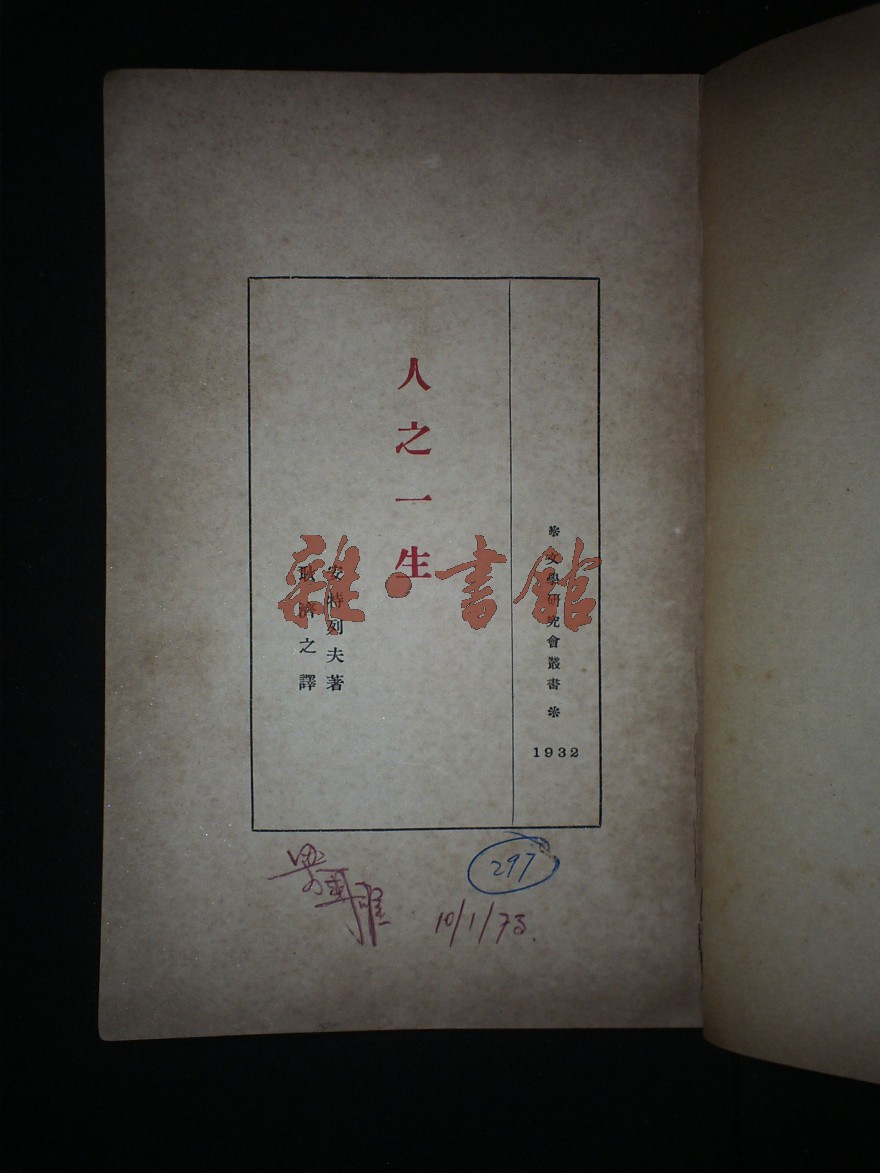 ＊文學研究會叢書＊
1932
人之一生
安特列夫著
耿濟之譯
雜·書館
297
10/1/73.